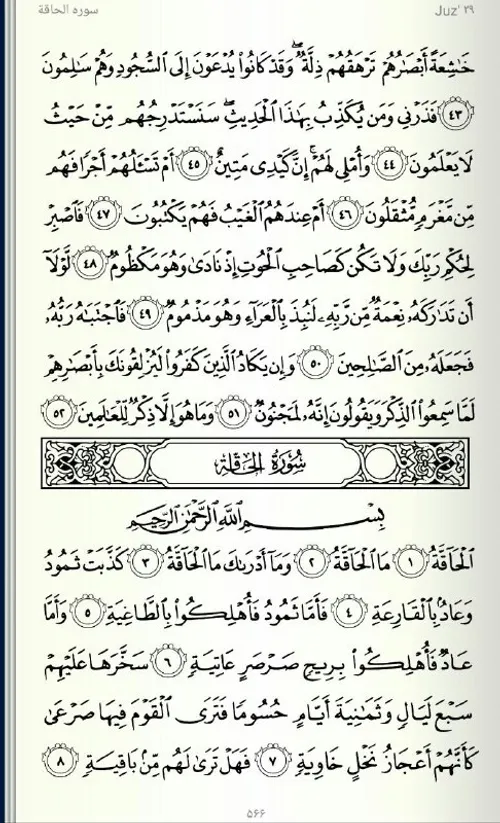 سورة الحاقة Juz' ٢٩
خَٰشِعَةً أَبْصَٰرُهُمْ تَرْهَقُهُمْ ذِلَّةٌ ۖ وَقَدْ كَانُوا۟ يُدْعَوْنَ إِلَى ٱلسُّجُودِ وَهُمْ سَٰلِمُونَ
٤٣ فَذَرْنِى وَمَن يُكَذِّبُ بِهَٰذَا ٱلْحَدِيثِ ۖ سَنَسْتَدْرِجُهُم مِّنْ حَيْثُ
لَا يَعْلَمُونَ ٤٤ وَأُمْلِى لَهُمْ ۚ إِنَّ كَيْدِى مَتِينٌ ٤٥ أَمْ تَسْـَٔلُهُمْ أَجْرًا فَهُم
مِّن مَّغْرَمٍ مُّثْقَلُونَ ٤٦ أَمْ عِندَهُمُ ٱلْغَيْبُ فَهُمْ يَكْتُبُونَ ٤٧ فَٱصْبِرْ
لِحُكْمِ رَبِّكَ وَلَا تَكُن كَصَاحِبِ ٱلْحُوتِ إِذْ نَادَىٰ وَهُوَ مَكْظُومٌ ٤٨ لَّوْلَآ
أَن تَدَٰرَكَهُۥ نِعْمَةٌ مِّن رَّبِّهِۦ لَنُبِذَ بِٱلْعَرَآءِ وَهُوَ مَذْمُومٌ ٤٩ فَٱجْتَبَٰهُ رَبُّهُۥ
فَجَعَلَهُۥ مِنَ ٱلصَّٰلِحِينَ ٥٠ وَإِن يَكَادُ ٱلَّذِينَ كَفَرُوا۟ لَيُزْلِقُونَكَ بِأَبْصَٰرِهِمْ
لَمَّا سَمِعُوا۟ ٱلذِّكْرَ وَيَقُولُونَ إِنَّهُۥ لَمَجْنُونٌ ٥١ وَمَا هُوَ إِلَّا ذِكْرٌ لِّلْعَٰلَمِينَ ٥٢
سُورَةُ الحَاقَّةِ
بِسْمِ ٱللَّهِ ٱلرَّحْمَٰنِ ٱلرَّحِيمِ
ٱلْحَآقَّةُ ١ مَا ٱلْحَآقَّةُ ٢ وَمَآ أَدْرَىٰكَ مَا ٱلْحَآقَّةُ ٣ كَذَّبَتْ ثَمُودُ
وَعَادٌۢ بِٱلْقَارِعَةِ ٤ فَأَمَّا ثَمُودُ فَأُهْلِكُوا۟ بِٱلطَّاغِيَةِ ٥ وَأَمَّا
عَادٌ فَأُهْلِكُوا۟ بِرِيحٍ صَرْصَرٍ عَاتِيَةٍ ٦ سَخَّرَهَا عَلَيْهِمْ
سَبْعَ لَيَالٍ وَثَمَٰنِيَةَ أَيَّامٍ حُسُومًا فَتَرَى ٱلْقَوْمَ فِيهَا صَرْعَىٰ
كَأَنَّهُمْ أَعْجَازُ نَخْلٍ خَاوِيَةٍ ٧ فَهَلْ تَرَىٰ لَهُم مِّنۢ بَاقِيَةٍ ٨
٥٦٦